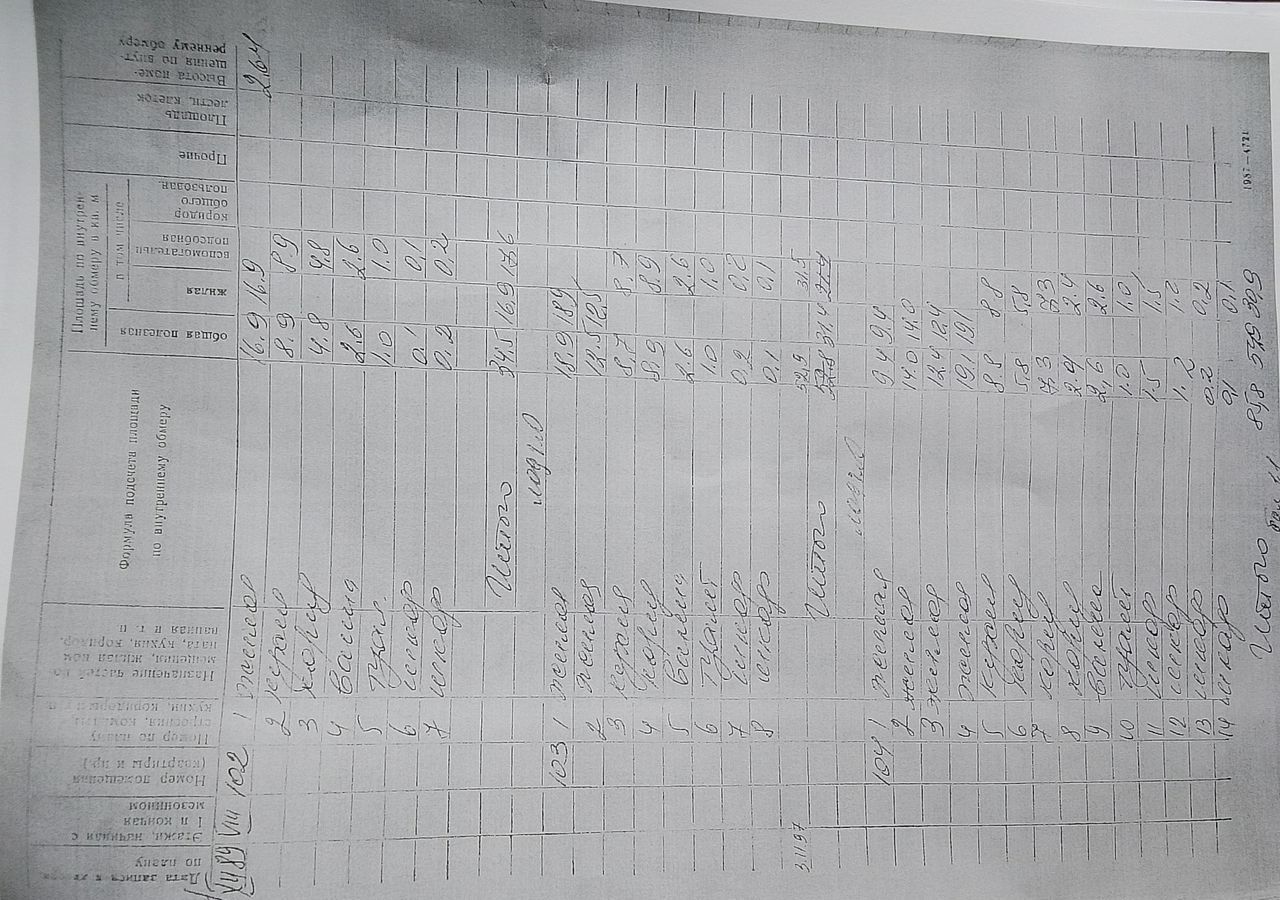 Дата записи
по плану
Этажи, начиная с
I и кончая
мезонином
Номер помещения
(квартиры и пр.)
Номер по плану
строения,
кухни, коридоры и т. п.
Назначение частей по-
мещения, жилая ком-
ната, кухня, коридор,
ванная и т. п.
Формула подсчета площади
по внутреннему обмеру
Площадь по внутрен-
нему обмеру в кв. м
в том числе
общая полезная
жилая
вспомогательн.
подсобная
коридор
общего
пользован.
Прочие
Площадь
лестн. клеток
Высота поме-
щения по внут-
реннему обмеру
VIII 102 1 жилая 16.9 16.9 2.64
2 кухня 8.9 8.9
3 корид 4.8 4.8
4 ванна 2.6 2.6
5 туал. 1.0 1.0
6 шкаф 0,1 0,1
7 шкаф 0,2 0,2
Итого 34.5 16.9 17.6
103 1 жилая 18.9 18.9
2 жилая 12.5 12.5
3 кухня 8.7 8.7
4 корид 8.9 8.9
5 ванна 2.6 2.6
6 туалет 1.0 1.0
7 шкаф 0,2 0,2
8 шкаф 0,1 0,1
3.11.97 52,9 31,5
Итого 52.8 31.4 21.4
104 1 жилая 9.4 9.4
2 жилая 14.0 14.0
3 жилая 12.4 12.4
4 жилая 19.1 19.1
5 кухня 8.8 8.8
6 корид 5.8 5.8
7 корид 7.3 7.3
8 корид 2.4
9 ванна 2,6 2.6
10 туалет 1.0 1.0
11 шкаф 1.5 1.5
12 шкаф 1.2 1.2
13 шкаф 0.2 0.2
14 шкаф 0,1 0,1
Итого 84,8 54,9 30,9
1987—4721